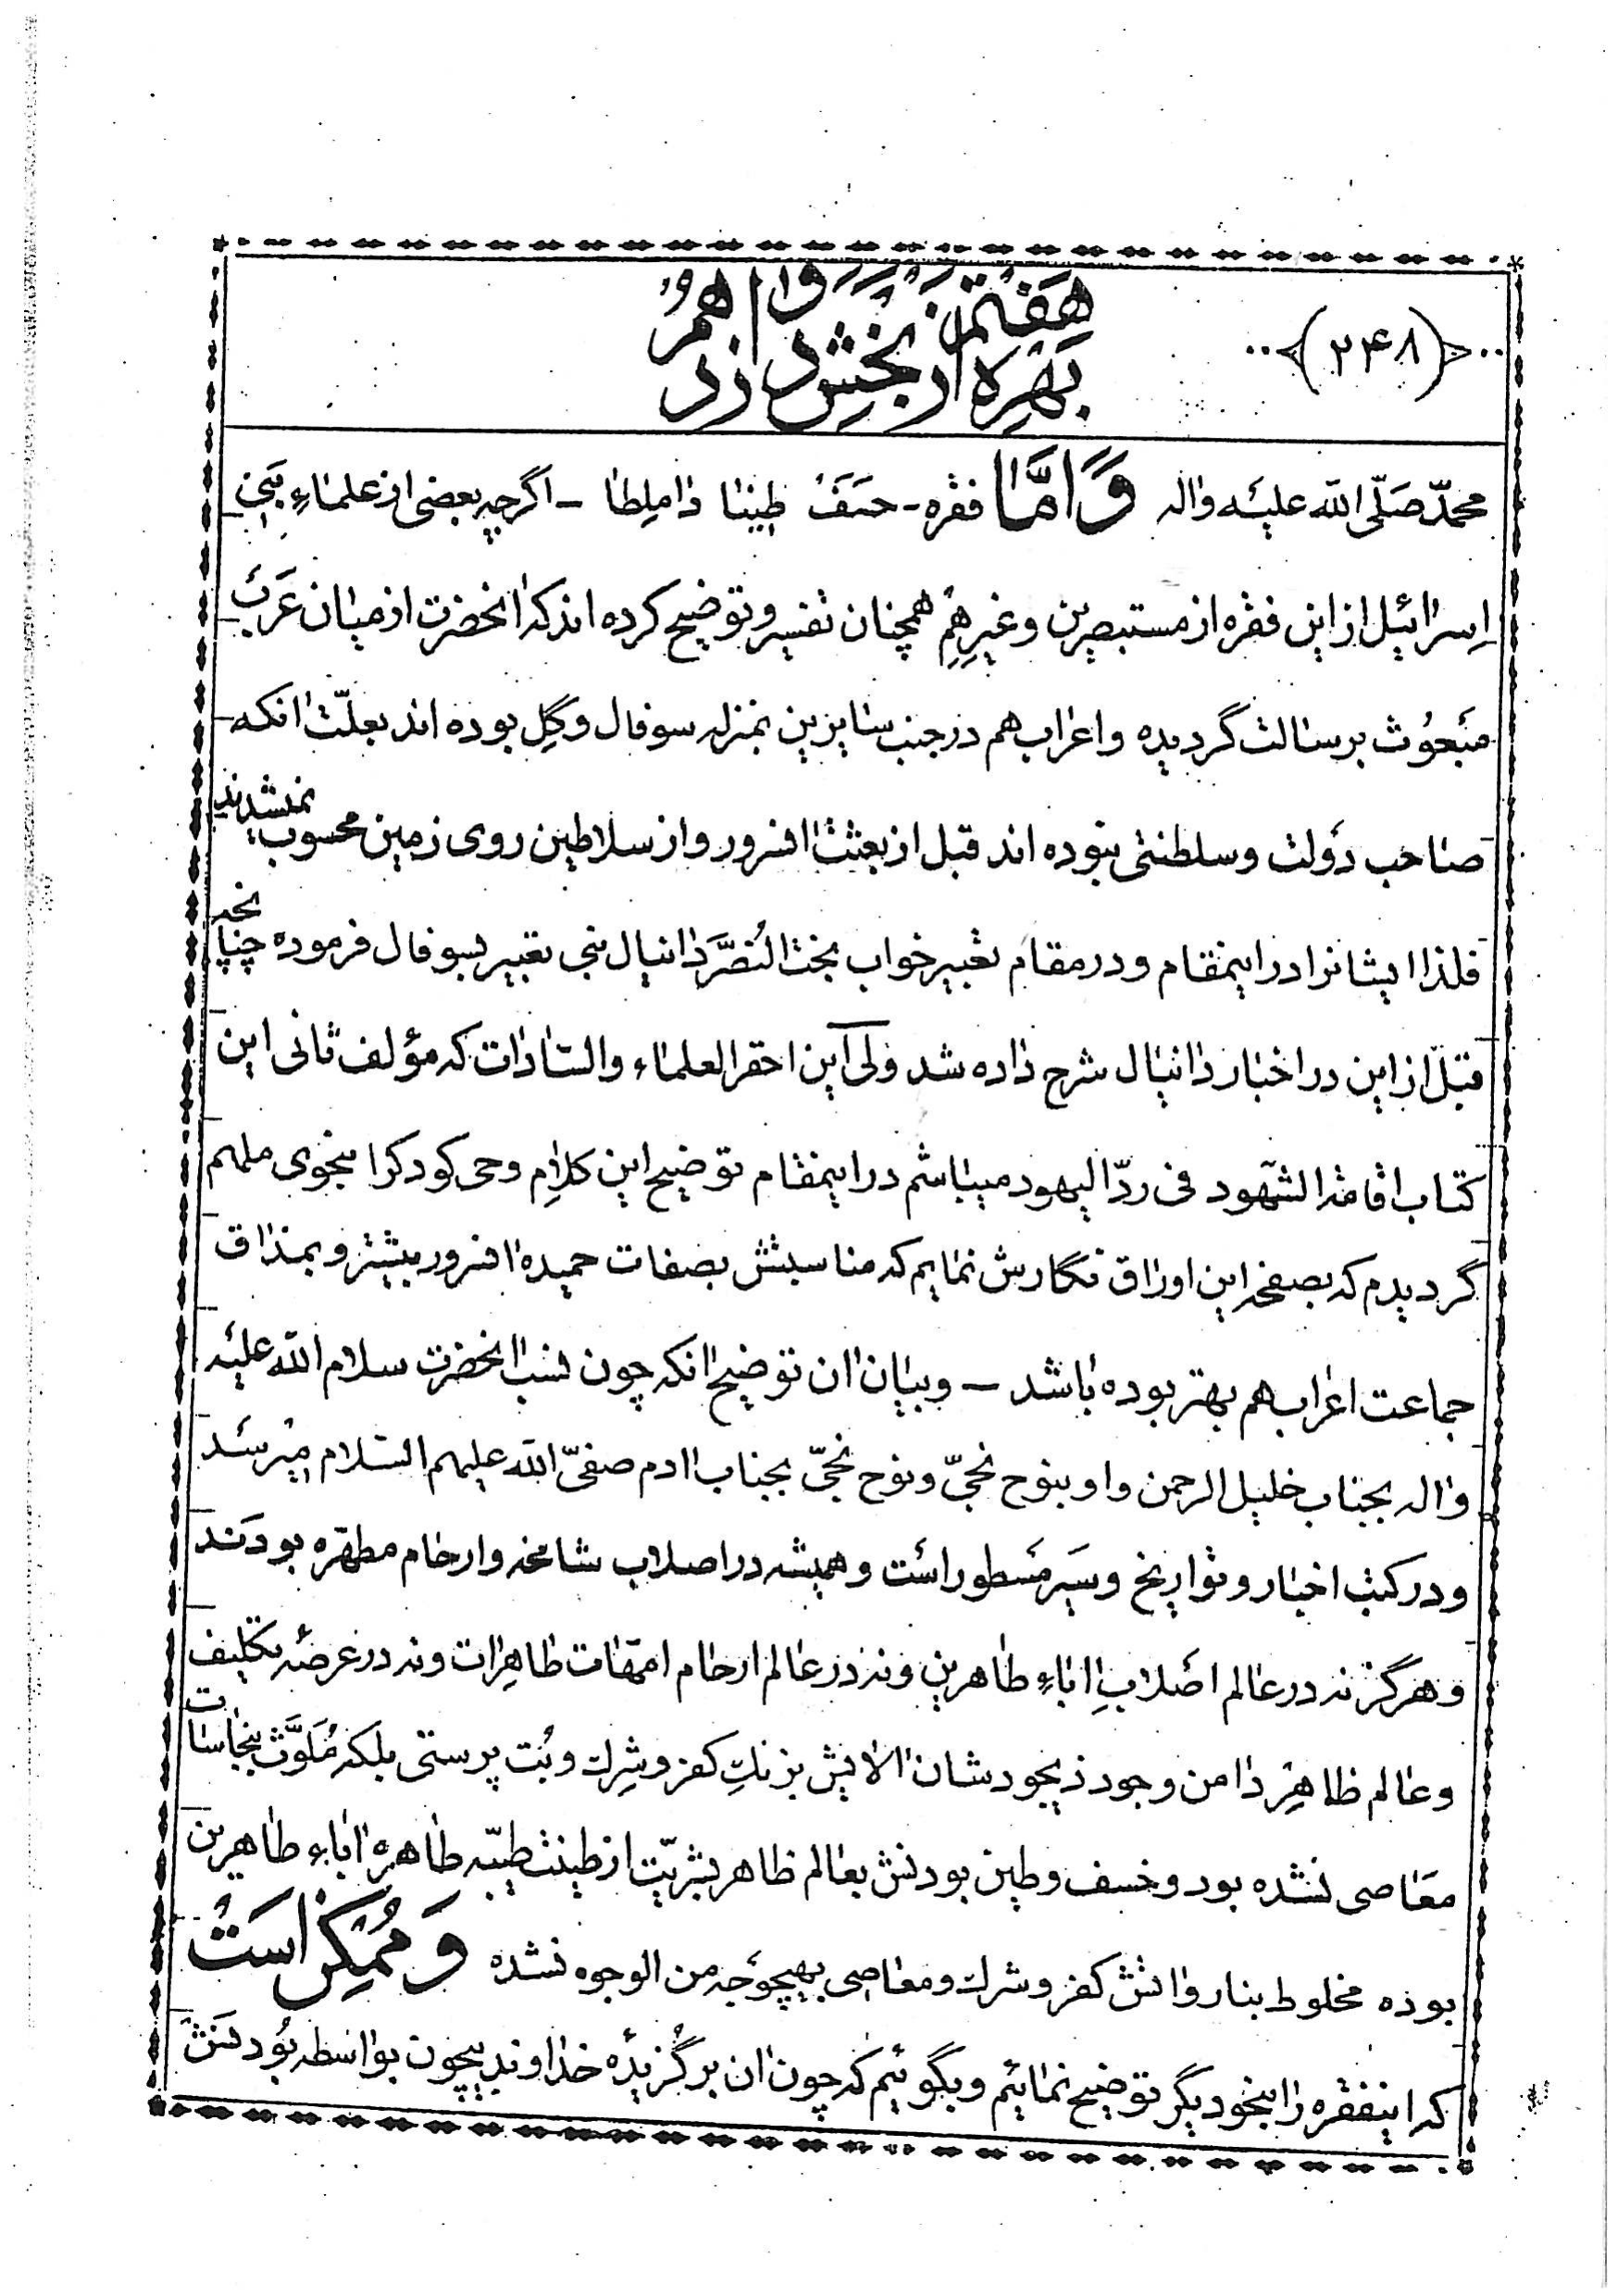 (۲۴۸)
هفتم
بهره از بخش دوازدهم
محمّد صَلّی الله علیه واله وَامَّا فقره - حَسَفْ طینا ذاملطا - اگرچه بعضی از علماءِ بَنی
اِسرائیل از این فقره از مستبصرین وغیرِهِم همچنان تفسیر وتوضیح کرده اند که انحضرت از میان عَرَب
مَبعُوث برسالت گردیده واعراب هم در جنب سایرین بمنزله سوفال وگِل بوده اند بعلّت انکه
صاحب دَولت وسلطنتی نبوده اند قبل از بعثت انسرور واز سلاطین روی زمین محسوب نمیشدند
فلذا ایشانرا در اینمقام ودر مقام تعبیر خواب بخت النُصَّر دانیال نبی تعبیر بسوفال فرموده چنانچه
قبل از این در اخبار دانیال شرح داده شد ولی این احقر العلماء والسّادات که مؤلف ثانی این
کتاب اقامة الشهود فی ردّ الیهود میباشم در اینمقام توضیح این کلامِ وحی کودک را بنحوی ملهم
گردیدم که بصفحه این اوراق نگارش نمایم که مناسبتش بصفات حمیده انسرور بیشتر وبمذاق
جماعت اعراب هم بهتر بوده باشد - وبیان ان توضیح انکه چون نسب انحضرت سلام الله علیه
واله بجناب خلیل الرحمن واو بنوح نجیّ ونوح نجیّ بجناب ادم صفیّ الله علیهم السّلام میرسد
ودر کتب اخبار وتواریخ وسِیَر مَسطور است وهمیشه در اصلاب شامخه وارحام مطهّره بودند
وهرگز نه در عالم اَصلابِ اباءِ طاهرین ونه در عالم ارحام امّهات طاهِرات ونه در عرصهٔ تکلیف
وعالم ظاهِر دامن وجود ذیجودشان الایش بزنكِ کفر وشِرك وبُت پرستی بلکه مُلَوَّث بنجاسات
معاصی نشده بود وخسف وطین بودنش بعالم ظاهر بشریّت از طینت طیّبه طاهره اباء طاهرین
بوده مخلوط بنار واتش کفر وشرك ومعاصی بهیچوَجه من الوجوه نشده وَمُمکِن است
که اینفقره را بنحو دیگر توضیح نمائیم وبگوئیم که چون ان برگزیدهٔ خداوند بیچون بواسطه بُودنش